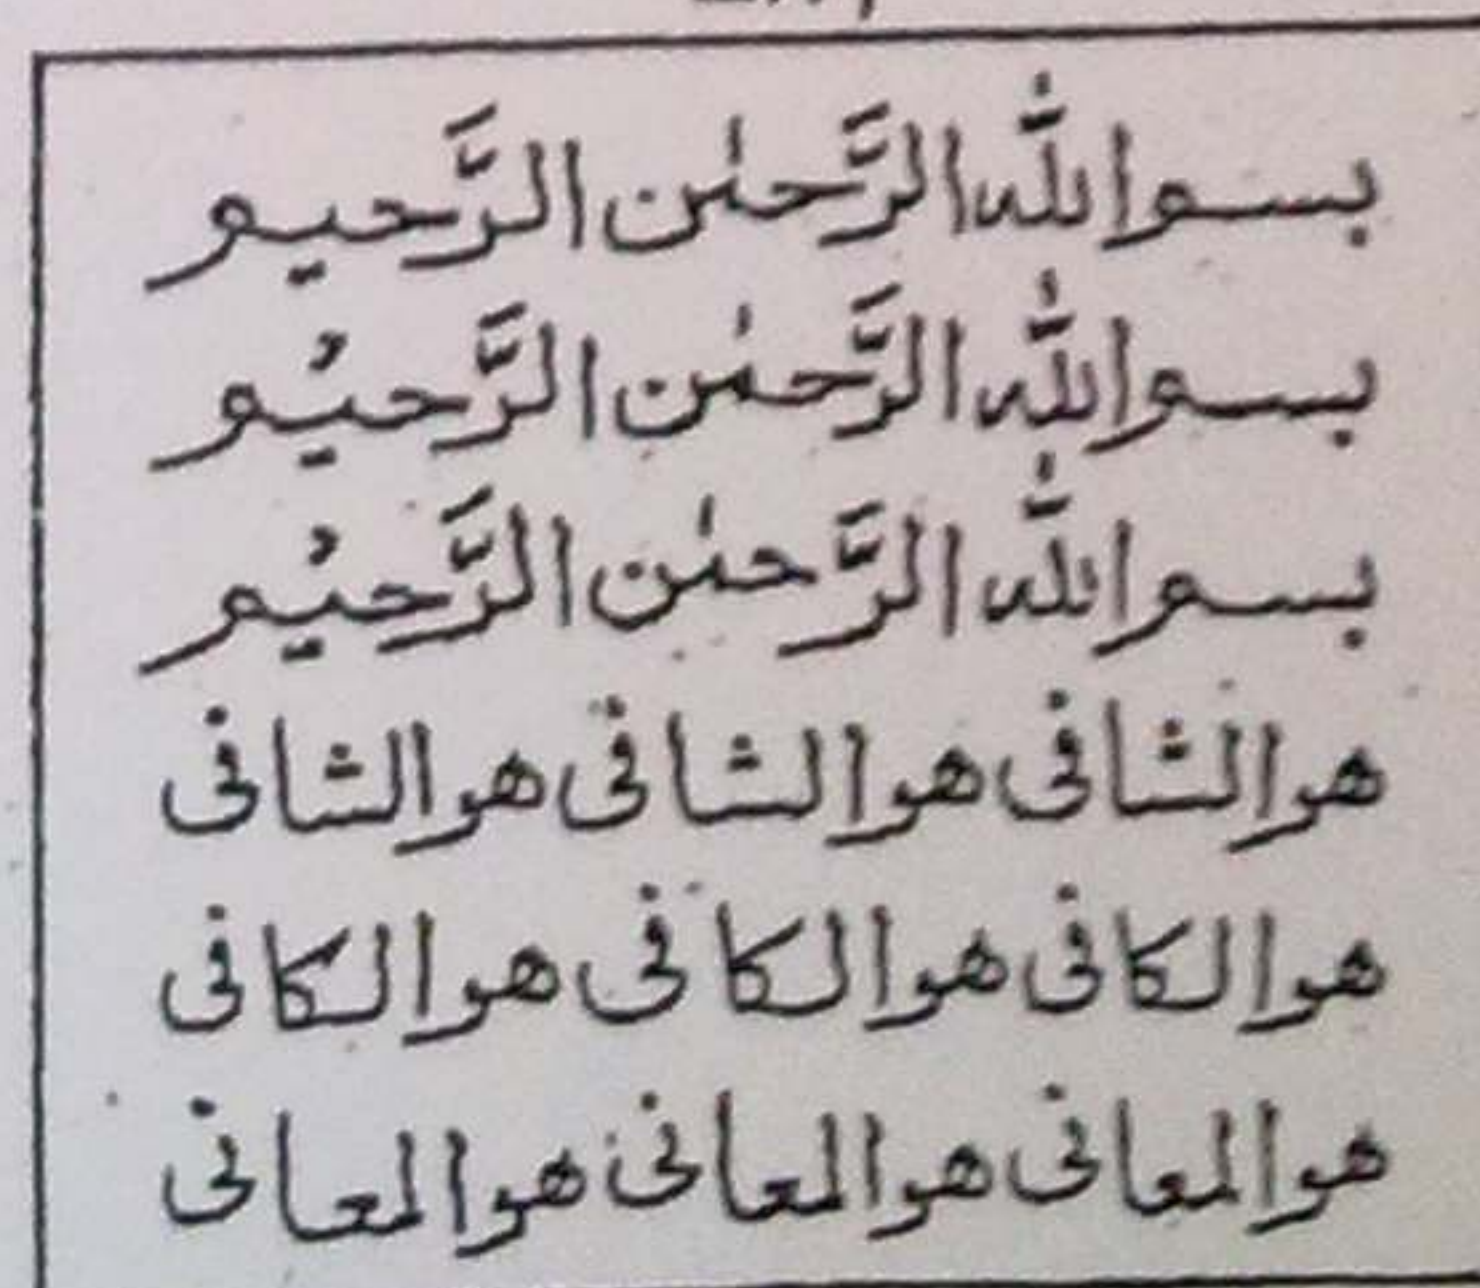 بسم اللّٰه الرَّحمٰن الرَّحيم
بسم اللّٰه الرَّحمٰن الرَّحيُم
بسم اللّٰه الرَّحمٰن الرَّحيُم
هوالشافی هوالشافی هوالشافی
هوالکافی هوالکافی هوالکافی
هوالمعافی هوالمعافی هوالمعافی